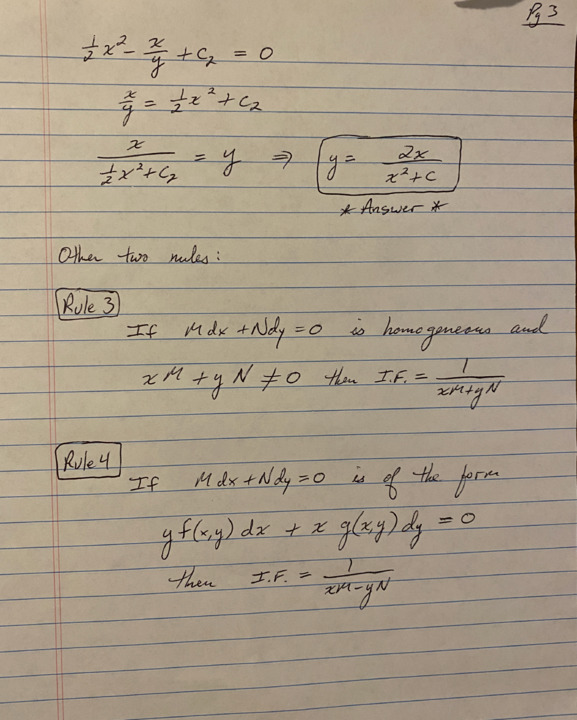 Pg 3
½x² - x/y + C₂ = 0
x/y = ½x² + C₂
x/(½x² + C₂) = y ⇒ y = 2x/(x² + C)
* Answer *
Other two rules:
Rule 3
If Mdx + Ndy = 0 is homogeneous and
xM + yN ≠ 0 then I.F. = 1/(xM+yN)
Rule 4
If Mdx + Ndy = 0 is of the form
yf(x,y)dx + x g(x,y)dy = 0
then I.F. = 1/(xM-yN)